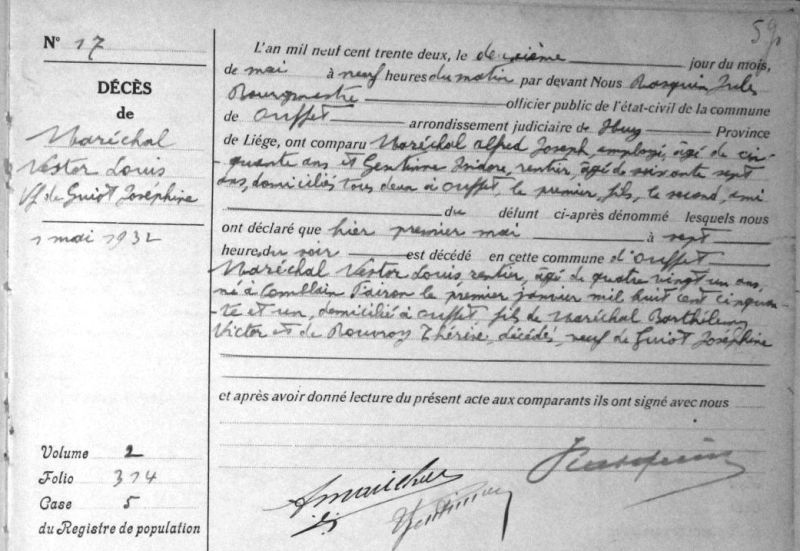 59
N° 17
DÉCÈS
de
Maréchal
Victor Louis
Vf de Guiot Joséphine
1 mai 1932
Volume 2
Folio 314
Case 5
du Registre de population
L'an mil neuf cent trente deux, le deuxième jour du mois,
de mai à neuf heures du matin par devant Nous Rosquin Jules
Bourgmestre officier public de l'état-civil de la commune
de Ouffet arrondissement judiciaire de Huy Province
de Liége, ont comparu Maréchal Alfred Joseph, employé, âgé de cin-
quante ans et Gentinne Isidore, rentier, âgé de soixante sept
ans, domiciliés tous deux à Ouffet, le premier, fils, le second, ami
du défunt ci-après dénommé lesquels nous
ont déclaré que hier premier mai à sept
heure du soir est décédé en cette commune d'Ouffet
Maréchal Victor Louis rentier, âgé de quatre vingt un ans,
né à Comblain Fairon le premier janvier mil huit cent cinquan-
-te et un, domicilié à Ouffet, fils de Maréchal Barthélemy
Victor et de Rouvroy Thérèse, décédés, veuf de Guiot Joséphine
et après avoir donné lecture du présent acte aux comparants ils ont signé avec nous